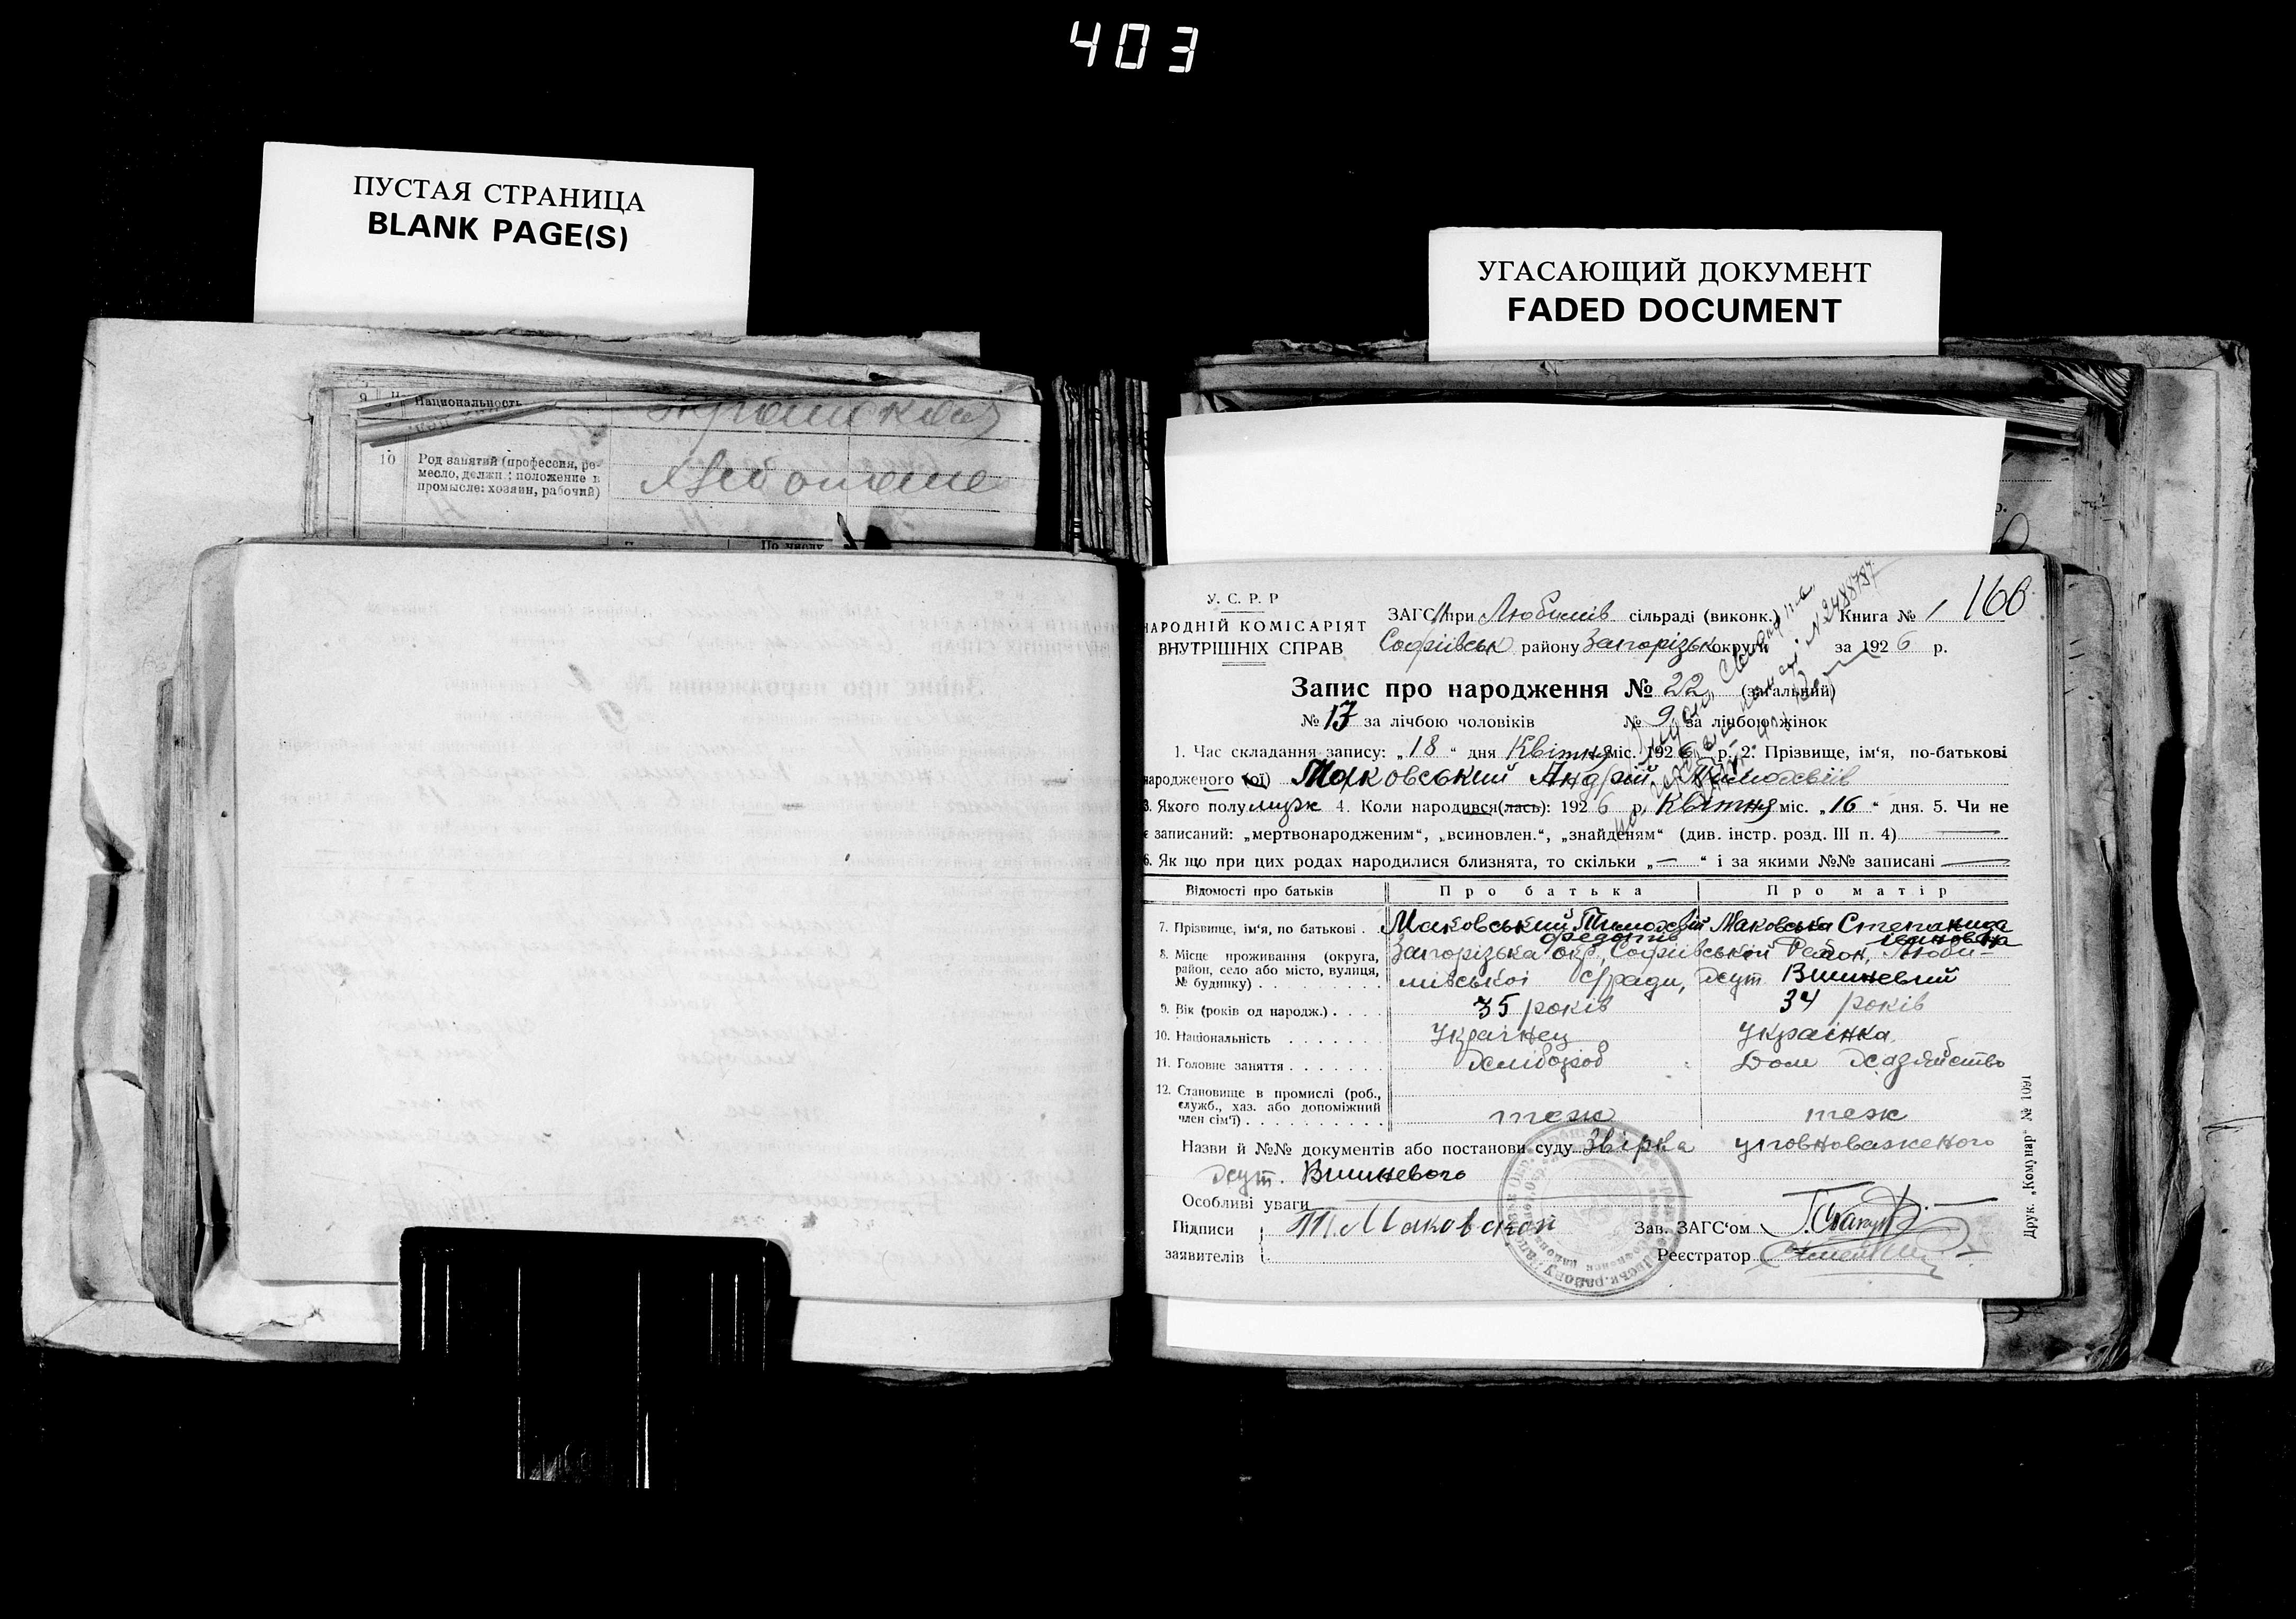 403
ПУСТАЯ СТРАНИЦА
BLANK PAGE(S)
УГАСАЮЩИЙ ДОКУМЕНТ
FADED DOCUMENT
9 Национальность
10 Род занятий (профессия, ре-
месло, должн.; положение в
промысле: хозяин, рабочий)
По числу
У. С. Р. Р
НАРОДНІЙ КОМІСАРІЯТ
ВНУТРІШНІХ СПРАВ
ЗАГС при Любимів сільраді (виконк.) Книга № 1 160
Софіївськ району Запорізьк округи за 1926 р.
Запис про народження № 22 (загальний)
№ 13 за лічбою чоловіків № 9 за лічбою жінок
1. Час складання запису: „18“ дня Квітня міс. 1926 р. 2. Прізвище, ім'я, по-батькові
народженого (ої) Маковський Андрій Тимохвіїв
3. Якого полу мужж 4. Коли народився(лась): 1926 р. Квітня міс. „16“ дня. 5. Чи не
є записаний: „мертвонародженим“, „всиновлен.“, „знайденям“ (див. інстр. розд. III п. 4)
6. Як що при цих родах народилися близнята, то скільки „—“ і за якими №№ записані —
Відомості про батьків Про батька Про матір
7. Прізвище, ім'я, по батькові . Маковський Тимохвій Маковська Степанида
Федотів Івановна
8. Місце проживання (округа, Запорізька окр, Софіївській Район, Люби-
район, село або місто, вулиця, мівської с/ради, хут Вишневий
№ будинку) . . . . . . . . .
9. Вік (років од народж.) . . . . 35 років 34 років
10. Національність . . . . . . . Українец Українка
11. Головне заняття . . . . . . . Хлібороб Дом Хазяйство
12. Становище в промислі (роб.,
служб., хаз. або допоміжний
член сім'ї) . . . . . . . . . . теж теж
Назви й №№ документів або постанови суду Звірка уповноваженого
хут. Вишневого
Особливі уваги
Підписи Т. Маковской Зав. ЗАГС'ом
заявителів Реєстратор
Друк. „Комунар“ № 1091